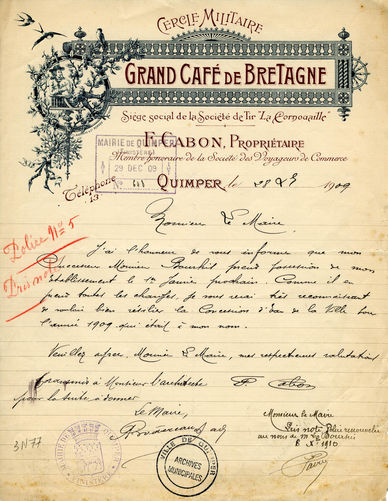 CERCLE MILITAIRE
GRAND CAFÉ DE BRETAGNE
Siège social de la Société de Tir "La Cornouaille"
F. CABON, PROPRIÉTAIRE
Membre honoraire de la Société des Voyageurs de Commerce
MAIRIE DE QUIMPER
FINISTÈRE
29 DEC 09
No
Téléphone
QUIMPER, le 28 1909
Monsieur Le Maire,
Police No 5
Pris note
J'ai l'honneur de vous informer que mon
Successeur Monsieur prend possession de mon
établissement le 1er Janvier prochain. Comme il en
prend toutes les charges, je vous serai très reconnaissant
de vouloir bien résilier la Concession d'eau de la Ville pour
l'année 1909 qui était à mon nom.
Veuillez agréer, Monsieur Le Maire, mes respectueuses salutations
Transmis à Monsieur l'architecte
F Cabon
pour la suite à donner
Le Maire,
Monsieur le Maire
Pris note Police renouvelée
au nom de M. Le
8 X 1910
3N77
MAIRIE DE QUIMPER
FINISTÈRE
VILLE DE QUIMPER
ARCHIVES
MUNICIPALES